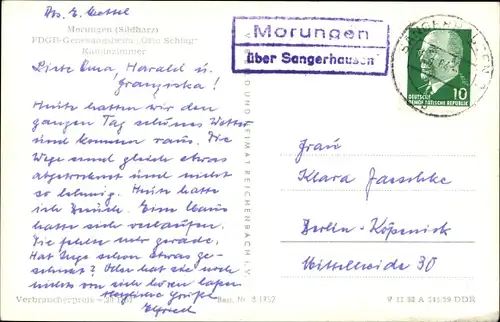 Morungen (Südharz)
FDGB-Genesungsheim „Otto Schlag“
Kaminzimmer
Liebe Oma, Harald u.
Franziska!
Heute hatten wir den
ganzen Tag schönes Wetter
und kommen raus. Die
Wege sind gleich etwas
abgetrocknet und nicht
so lehmig. Heute hatte
ich Besuch. Eine Maus
hatte sich verlaufen.
Die fehlte mir gerade.
Hat Inge schon etwas ge-
Oder hat sie noch
nichts von sich hören lassen
Herzliche Grüße
Elfriede
Verbraucherpreis
Best. Nr. 8 1952
UND HEIMAT REICHENBACH I. V.
Morungen
über Sangerhausen
SANGERHAUSEN
10
DEUTSCHE
DEMOKRATISCHE REPUBLIK
Frau
Klara Jaeschke
Berlin-Köpenick
Mittelheide 30
V 11 28 A 545/59 DDR